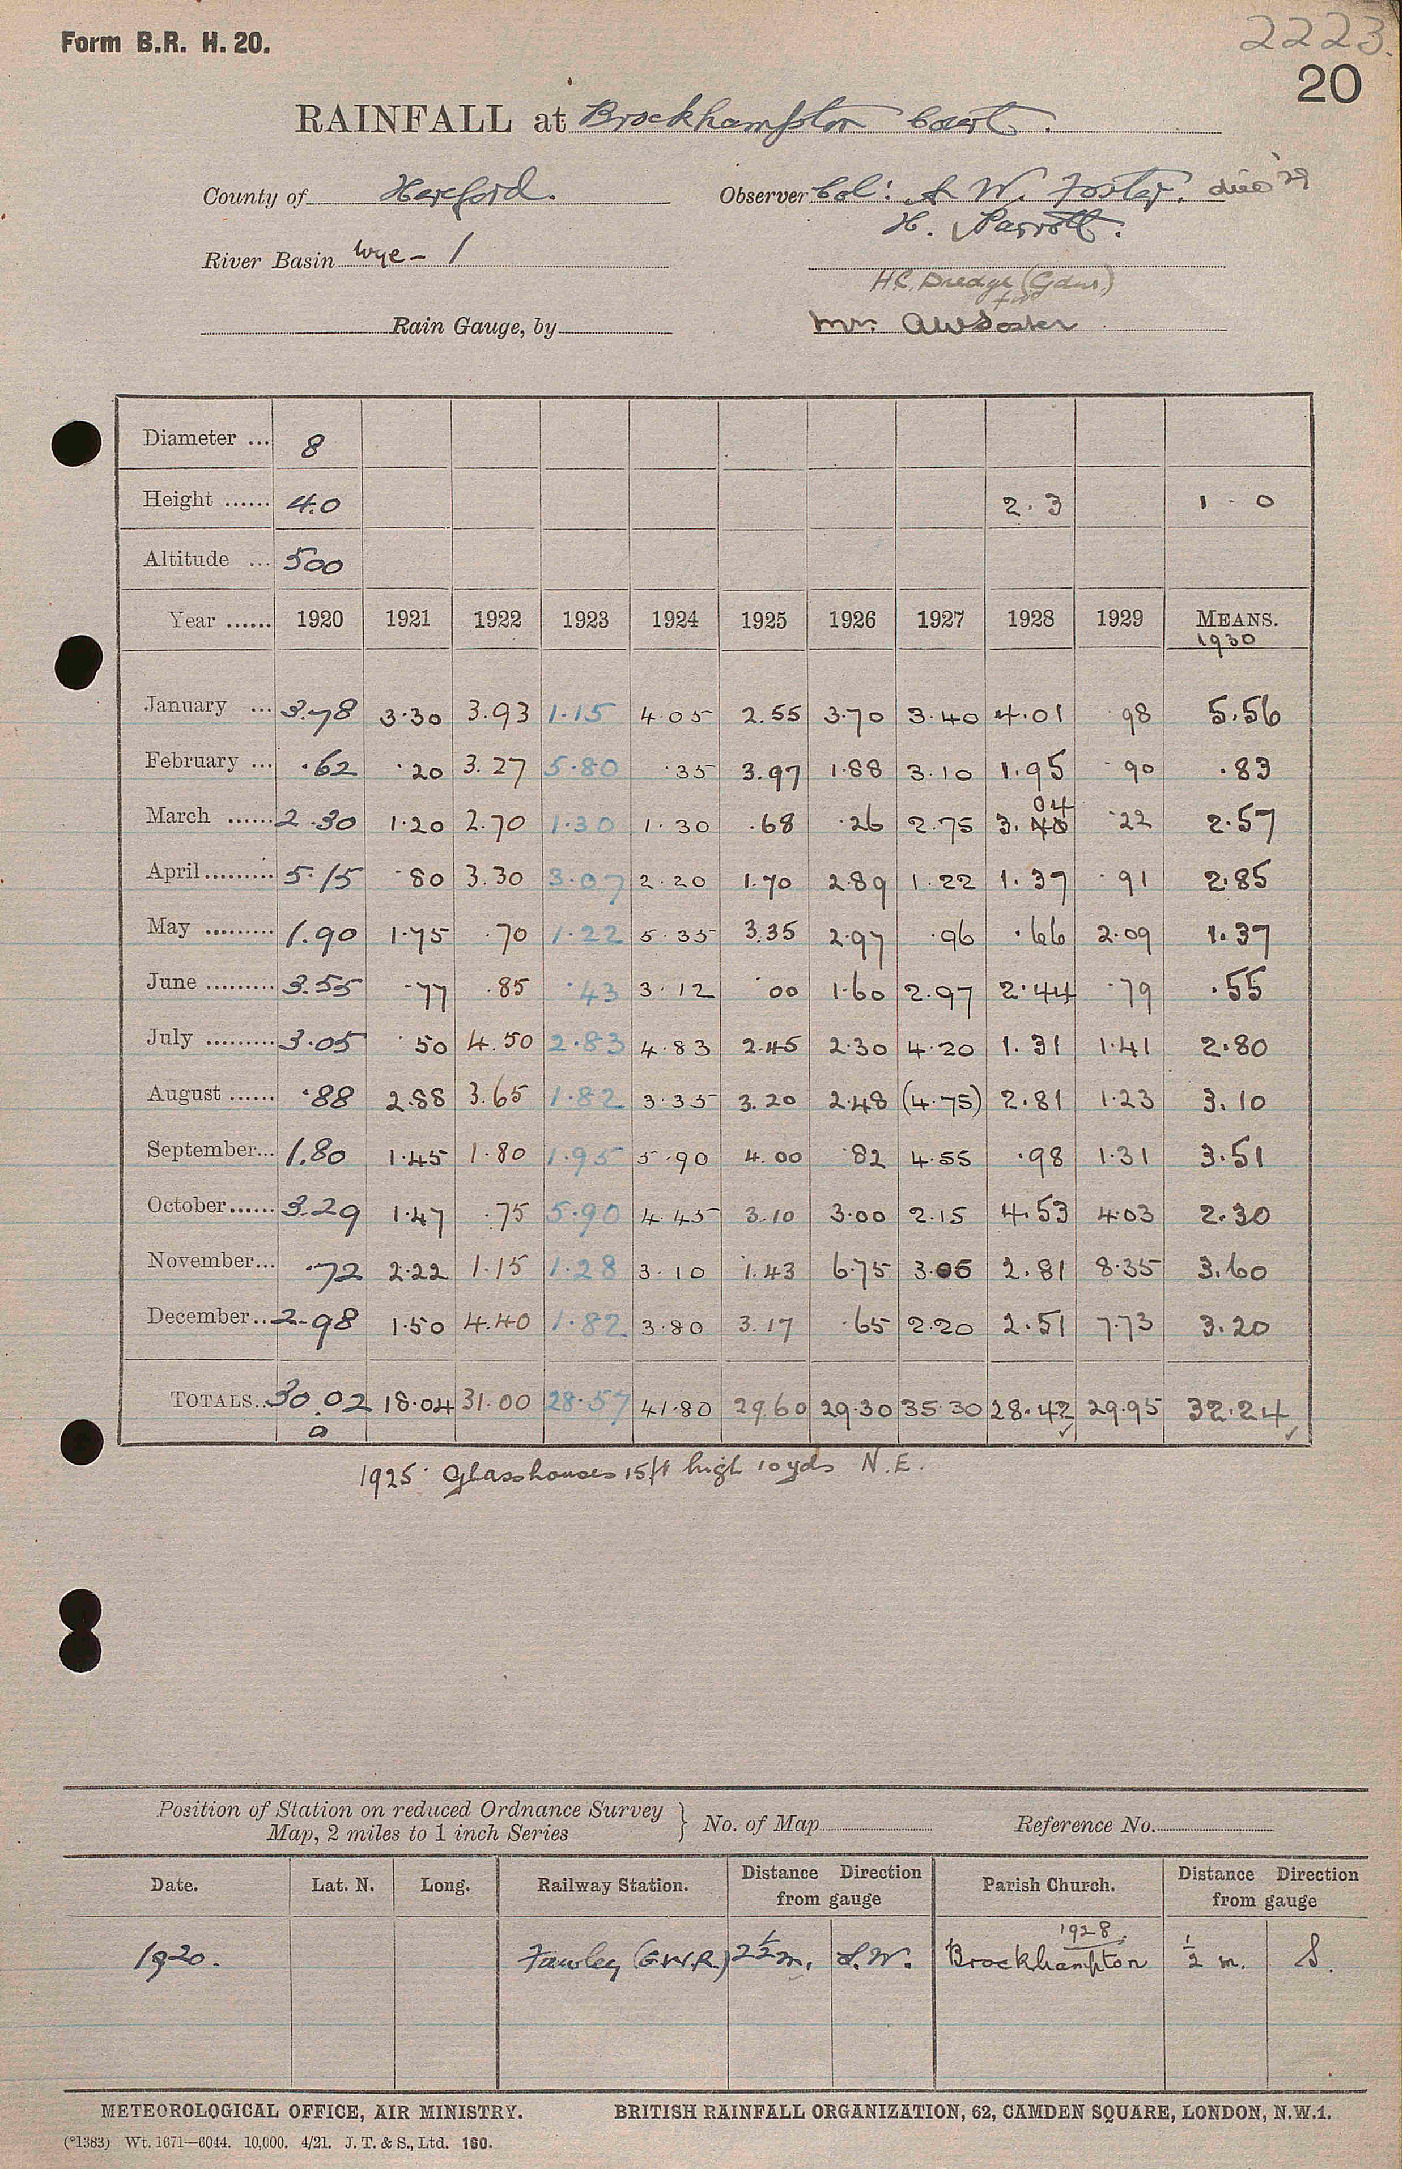 Form B.R. H. 20.
2223.
20
RAINFALL at Brockhampton Court.
County of Hereford. Observer Col: A W. Foster. died '29
H. Parrott.
River Basin Wye - 1
H.C. Dredge (Gdnr)
for
Rain Gauge, by Mr. AW Foster
Diameter ... 8
Height ...... 4.0 2.3 1 - 0
Altitude ... 500
Year ...... 1920 1921 1922 1923 1924 1925 1926 1927 1928 1929 MEANS.
1930
January ... 3.78 3.30 3.93 1.15 4.05 2.55 3.70 3.40 4.01 .98 5.56
February ... .62 .20 3.27 5.80 .35 3.97 1.88 3.10 1.95 .90 .83
04
March ...... 2.30 1.20 2.70 1.30 1.30 .68 .26 2.75 3.40 .22 2.57
April ......... 5.15 .80 3.30 3.07 2.20 1.70 2.89 1.22 1.37 .91 2.85
May ......... 1.90 1.75 .70 1.22 5.35 3.35 2.97 .96 .66 2.09 1.37
June ......... 3.55 .77 .85 .43 3.12 .00 1.60 2.97 2.44 .79 .55
July ......... 3.05 .50 4.50 2.83 4.83 2.45 2.30 4.20 1.31 1.41 2.80
August ...... .88 2.88 3.65 1.82 3.35 3.20 2.48 (4.75) 2.81 1.23 3.10
September... 1.80 1.45 1.80 1.95 5.90 4.00 .82 4.55 .98 1.31 3.51
October ...... 3.29 1.47 .75 5.90 4.45 3.10 3.00 2.15 4.53 4.03 2.30
November... .72 2.22 1.15 1.28 3.10 1.43 6.75 3.05 2.81 8.35 3.60
December... 2.98 1.50 4.40 1.82 3.80 3.17 .65 2.20 2.51 7.73 3.20
TOTALS.. 30.02 18.04 31.00 28.57 41.80 29.60 29.30 35.30 28.42 29.95 32.24
a
1925 Glasshouses 15ft high 10 yds N.E.
Position of Station on reduced Ordnance Survey
Map, 2 miles to 1 inch Series } No. of Map Reference No.
Date. Lat. N. Long. Railway Station. Distance Direction from gauge Parish Church. Distance Direction from gauge
1928
1920. Fawley (G.W.R.) 2½ m. S.W. Brockhampton ½ m. S.
METEOROLOGICAL OFFICE, AIR MINISTRY. BRITISH RAINFALL ORGANIZATION, 62, CAMDEN SQUARE, LONDON, N.W.1.
(*1383) Wt. 1671—6044. 10,000. 4/21. J. T. & S., Ltd. 160.